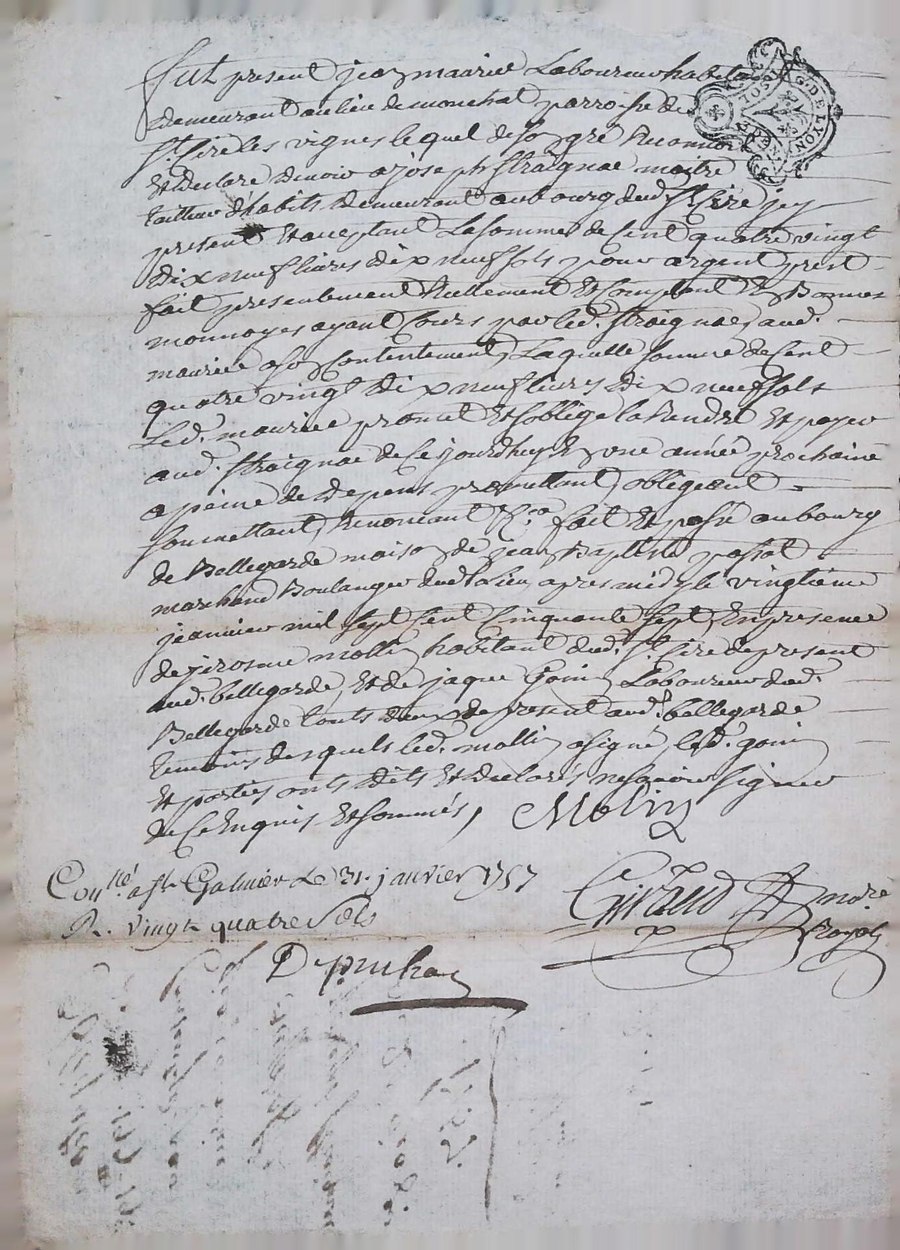 fut present jean maurice Laboureur habita
demeurant au lieu de monchal parroisse de
st. Sire les vignes lequel de son gré Reconnoi
Et declare devoir a joseph straignae maitre
tailleur dhabits demeurant au bourg dud. st. Sire jcy
present Et acceptant La somme de Cent quatre vingt
dix neuf livres dix neuf sols pour argent prest
fait presentement Reellement Et Comptant En Bonnes
monnoyes ayant Cours par led. straignae aud.
maurice a son Contentement, Laquelle somme de Cent
quatre vingt dix neuf livres dix neuf sols
Led. maurice promet Et soblige la Rendre Et payer
aud. straignae de Ce jourdhuy En une année prochaine
a peine de depens promettant, obligeant
soumettant, Renoncant &ca. fait Et passé au bourg
de Bellegarde maison de jean Baptiste passot
marchand Boulanger dud. lieu, apres midy le vingtième
jeanvier mil sept Cent Cinquante sept, En presence
de jirosme mollin habitant dud. st. Sire de present
aud. bellegarde, Et de jaque goin Laboureur dud.
Bellegarde touts deux de present aud. bellegarde
temoins desquels led. mollin a signé, led. goin
Et parties onts dits Et declarés ne scavoir signer
de Ce Enquis Et sommés,
Molin
Conllé. a st. Galmier Le 31. janvier 1757
R. vingt quatre sols
Giraud nore.
Royal
G. DE LYON